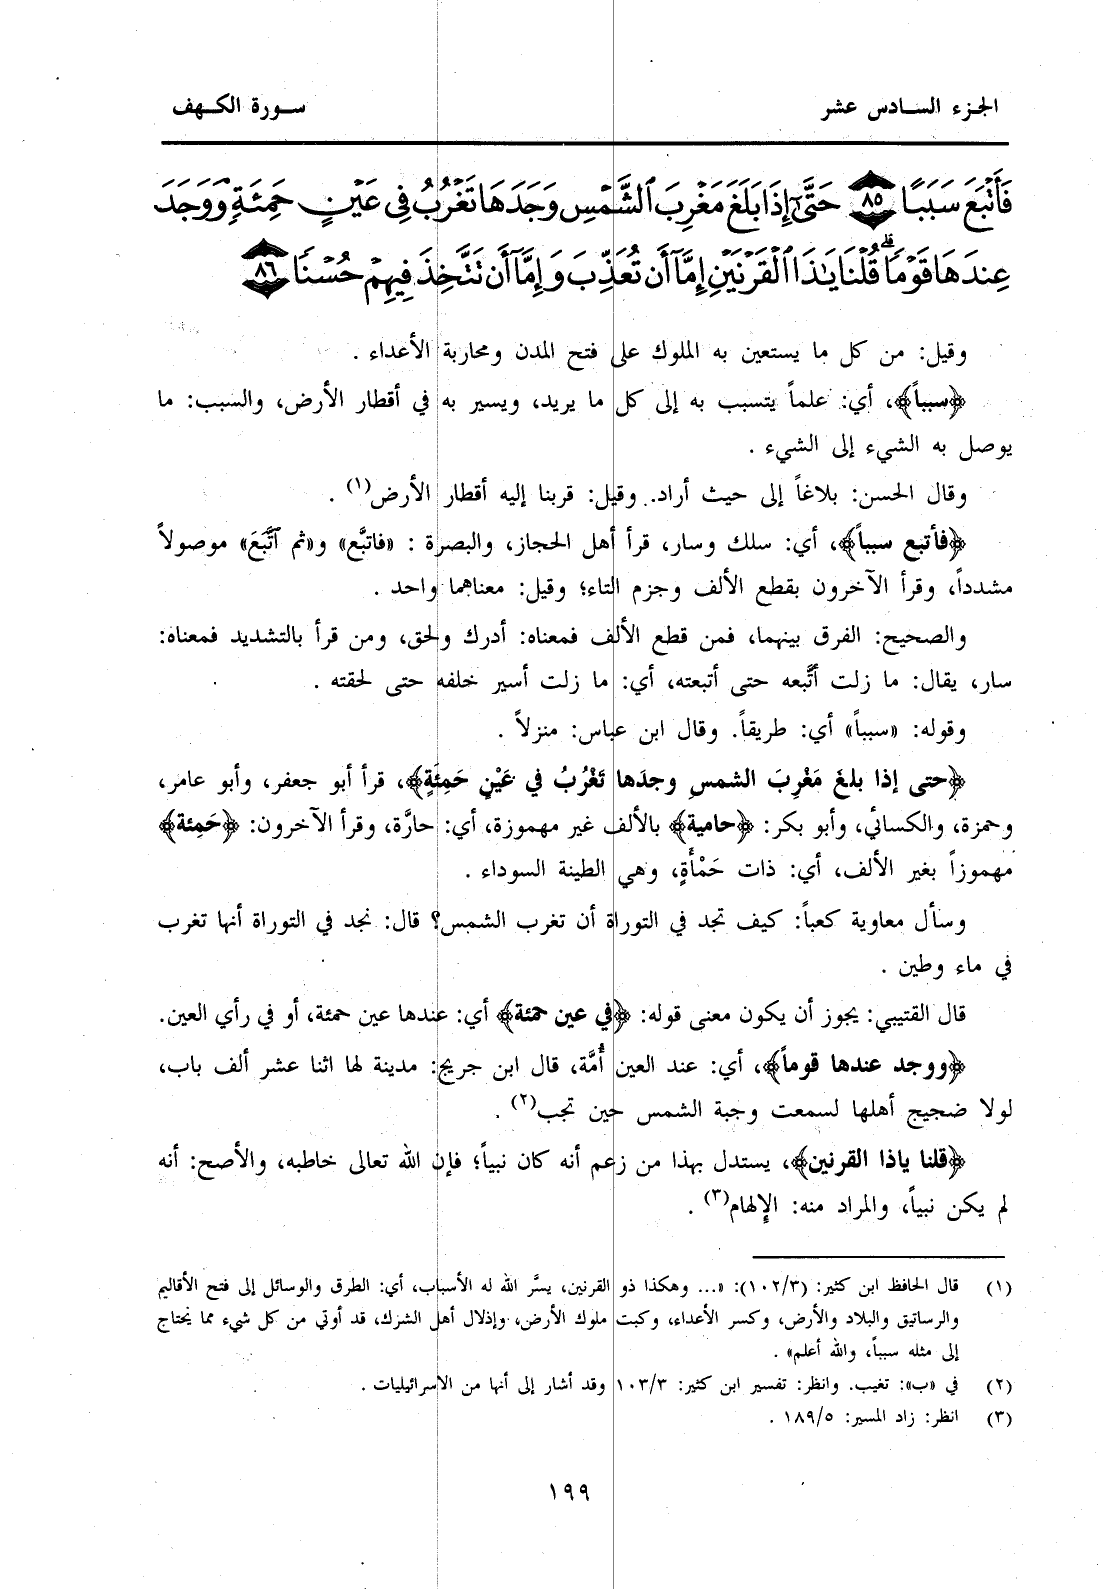 الجزء السادس عشر
سورة الكهف
فَأَتْبَعَ سَبَبًا ٨٥ حَتَّىٰٓ إِذَا بَلَغَ مَغْرِبَ ٱلشَّمْسِ وَجَدَهَا تَغْرُبُ فِى عَيْنٍ حَمِئَةٍ وَوَجَدَ
عِندَهَا قَوْمًا ۗ قُلْنَا يَٰذَا ٱلْقَرْنَيْنِ إِمَّآ أَن تُعَذِّبَ وَإِمَّآ أَن تَتَّخِذَ فِيهِمْ حُسْنًا ٨٦
وقيل: من كل ما يستعين به الملوك على فتح المدن ومحاربة الأعداء .
﴿سبباً﴾، أي: علماً يتسبب به إلى كل ما يريد، ويسير به في أقطار الأرض، والسبب: ما
يوصل به الشيء إلى الشيء .
وقال الحسن: بلاغاً إلى حيث أراد. وقيل: قربنا إليه أقطار الأرض(١) .
﴿فأتبع سبباً﴾، أي: سلك وسار، قرأ أهل الحجاز، والبصرة : «فاتبَّع» و«ثم اتَّبَعَ» موصولاً
مشدداً، وقرأ الآخرون بقطع الألف وجزم التاء؛ وقيل: معناهما واحد .
والصحيح: الفرق بينهما، فمن قطع الألف فمعناه: أدرك ولحق، ومن قرأ بالتشديد فمعناه:
سار، يقال: ما زلت أتَّبعه حتى أتبعته، أي: ما زلت أسير خلفه حتى لحقته .
وقوله: «سبباً» أي: طريقاً. وقال ابن عباس: منزلاً .
﴿حتى إذا بلغَ مَغْرِبَ الشمسِ وجدَها تَغْرُبُ في عَيْنٍ حَمِئَةٍ﴾، قرأ أبو جعفر، وأبو عامر،
وحمزة، والكسائي، وأبو بكر: ﴿حامية﴾ بالألف غير مهموزة، أي: حارَّة، وقرأ الآخرون: ﴿حَمِئة﴾
مهموزاً بغير الألف، أي: ذات حَمْأَةٍ، وهي الطينة السوداء .
وسأل معاوية كعباً: كيف تجد في التوراة أن تغرب الشمس؟ قال: نجد في التوراة أنها تغرب
في ماء وطين .
قال القتيبي: يجوز أن يكون معنى قوله: ﴿في عين حمئة﴾ أي: عندها عين حمئة، أو في رأي العين.
﴿ووجد عندها قوماً﴾، أي: عند العين أُمَّة، قال ابن جريج: مدينة لها اثنا عشر ألف باب،
لولا ضجيج أهلها لسمعت وجبة الشمس حين تجب(٢) .
﴿قلنا ياذا القرنين﴾، يستدل بهذا من زعم أنه كان نبياً؛ فإن الله تعالى خاطبه، والأصح: أنه
لم يكن نبياً، والمراد منه: الإلهام(٣) .
(١) قال الحافظ ابن كثير: (١٠٢/٣): «... وهكذا ذو القرنين، يسَّر الله له الأسباب، أي: الطرق والوسائل إلى فتح الأقاليم
والرساتيق والبلاد والأرض، وكسر الأعداء، وكبت ملوك الأرض، وإذلال أهل الشرك، قد أوتي من كل شيء مما يحتاج
إلى مثله سبباً، والله أعلم» .
(٢) في «ب»: تغيب. وانظر: تفسير ابن كثير: ١٠٣/٣ وقد أشار إلى أنها من الإسرائيليات .
(٣) انظر: زاد المسير: ١٨٩/٥ .
١٩٩